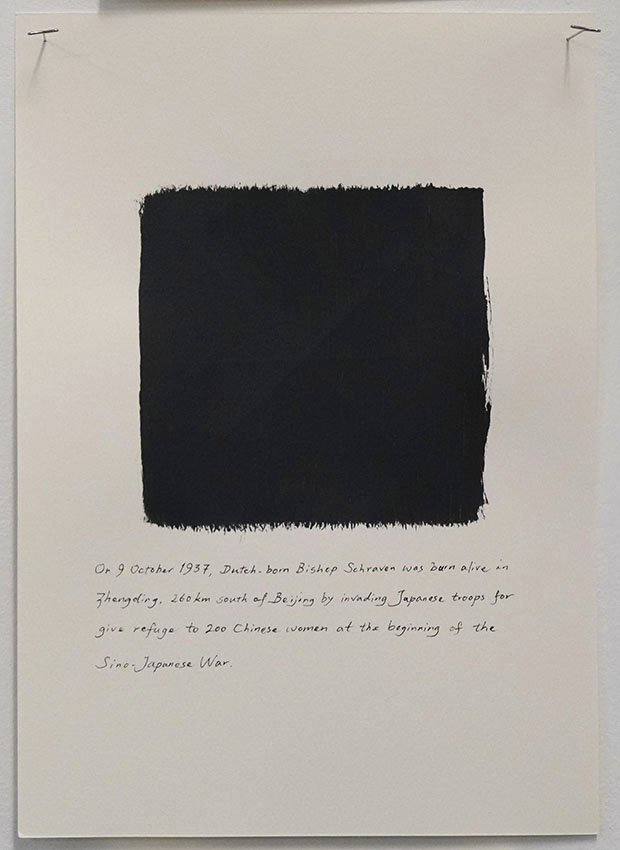 On 9 October 1937, Dutch-born Bishop Schraven was burn alive in
Zhengding, 260 km south of Beijing by invading Japanese troops for
give refuge to 200 Chinese women at the beginning of the
Sino-Japanese War.